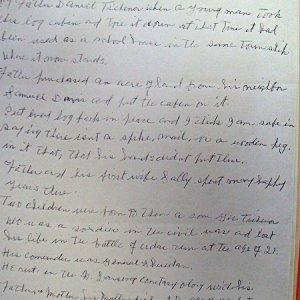 my Father Daniel Tichnor when a young man took
the log cabin and tore it down at that time it had
been used as a school house in the same township
where it now stands.
Father purchased an acre of land from his neighbor
Samuel Davis and put the cabin on it
Put every log back in place and I think I am safe in
saying there isnt a spike, nail, or a wooden peg
in it that, that his hands didnt put there.
Father and his first wife Sally spent many happy
years there.
Two children were born to them a son Geo Tichnor
who was a soldier in the civil war and lost
his life in the battle of cedar run at the age of 21.
His comander was General Sheridan.
He rest in the N. Lansing cemetary along with his
Father & Mother his Mother died